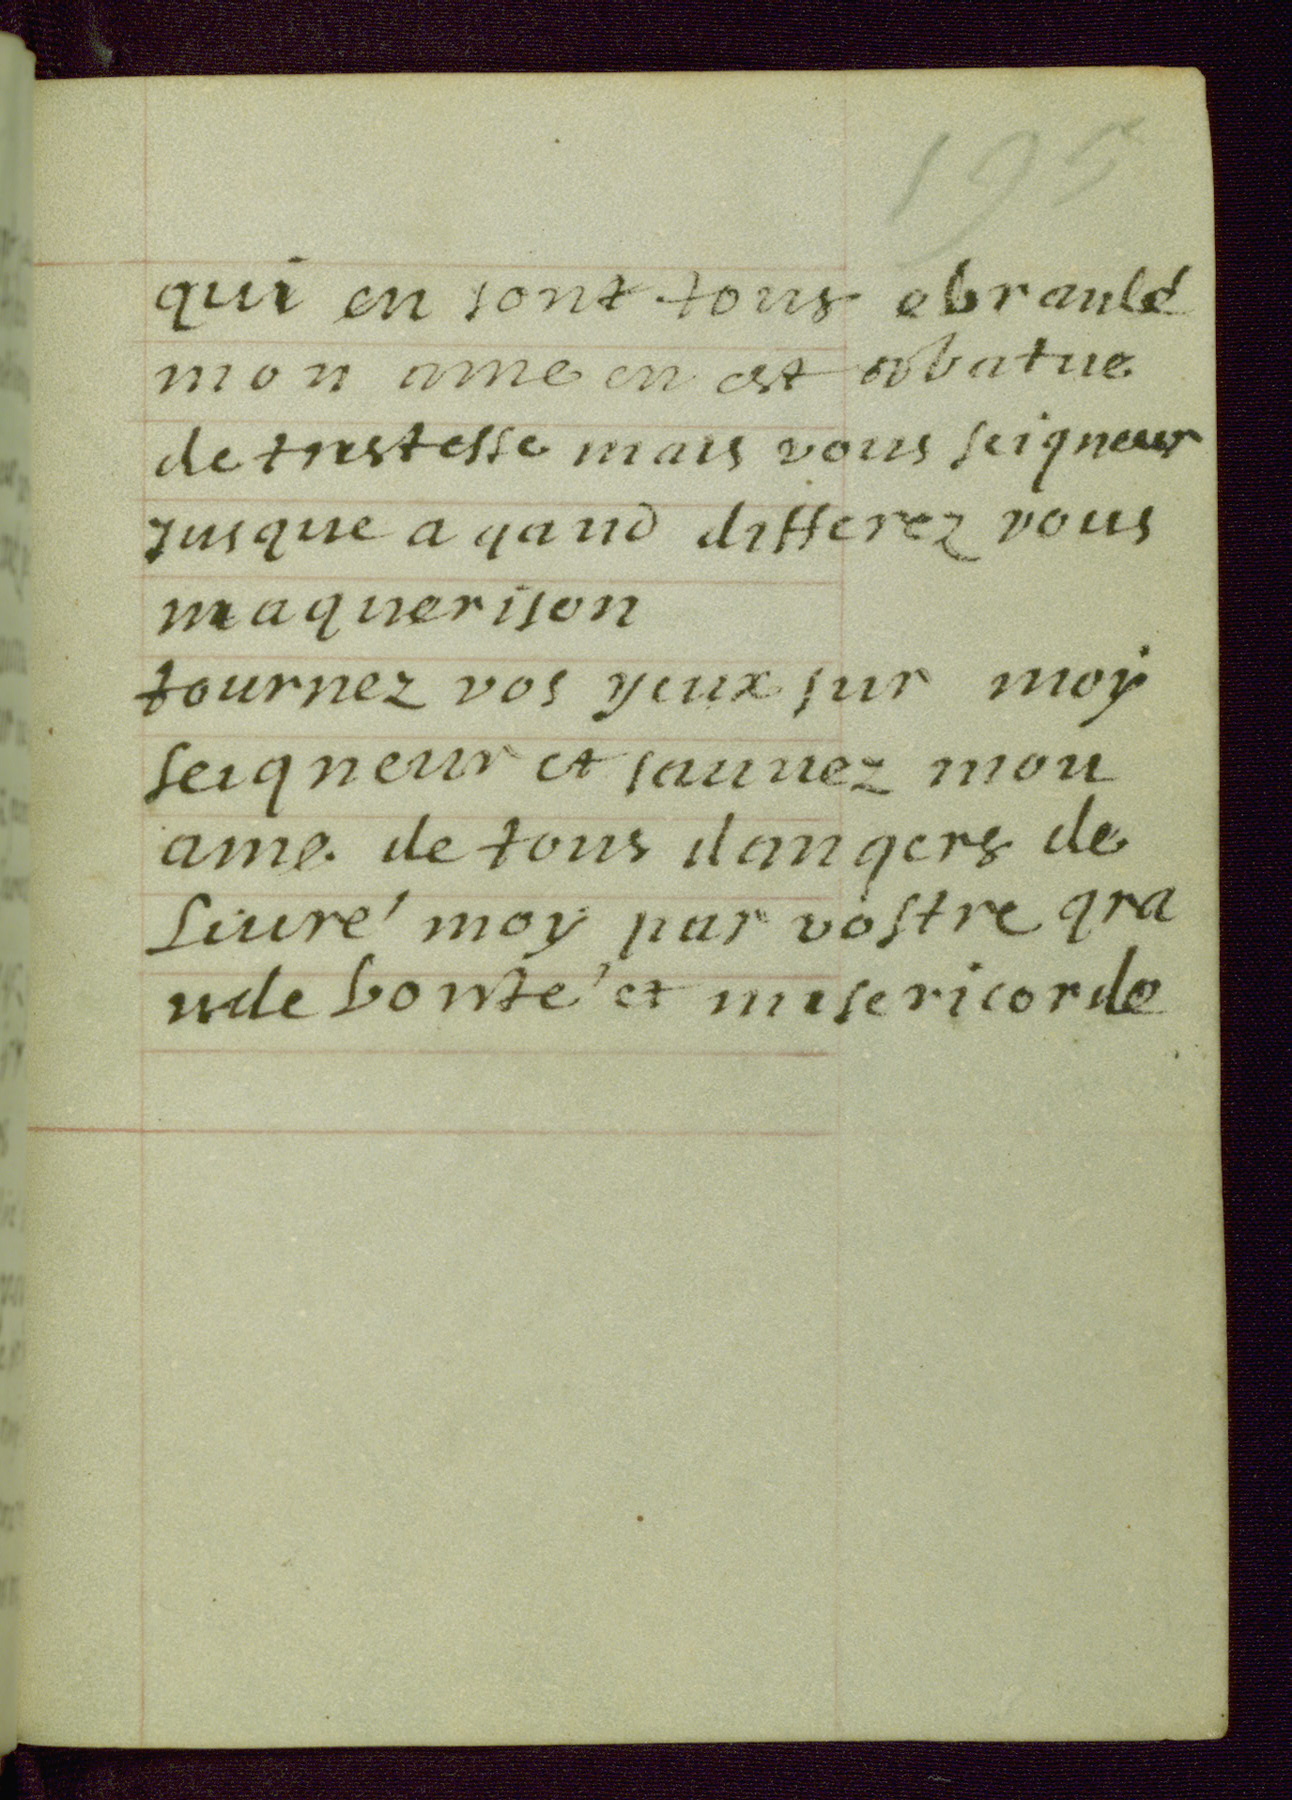 195
qui en sont tous ebranlé
mon ame en est abatue
de tristesse mais vous seigneur
jusque a qand differez vous
ma querison
tournez vos yeux sur moy
seigneur et sauuez mon
ame de tous dangers de
liuré moy par vostre gra
nde bonté et misericorde